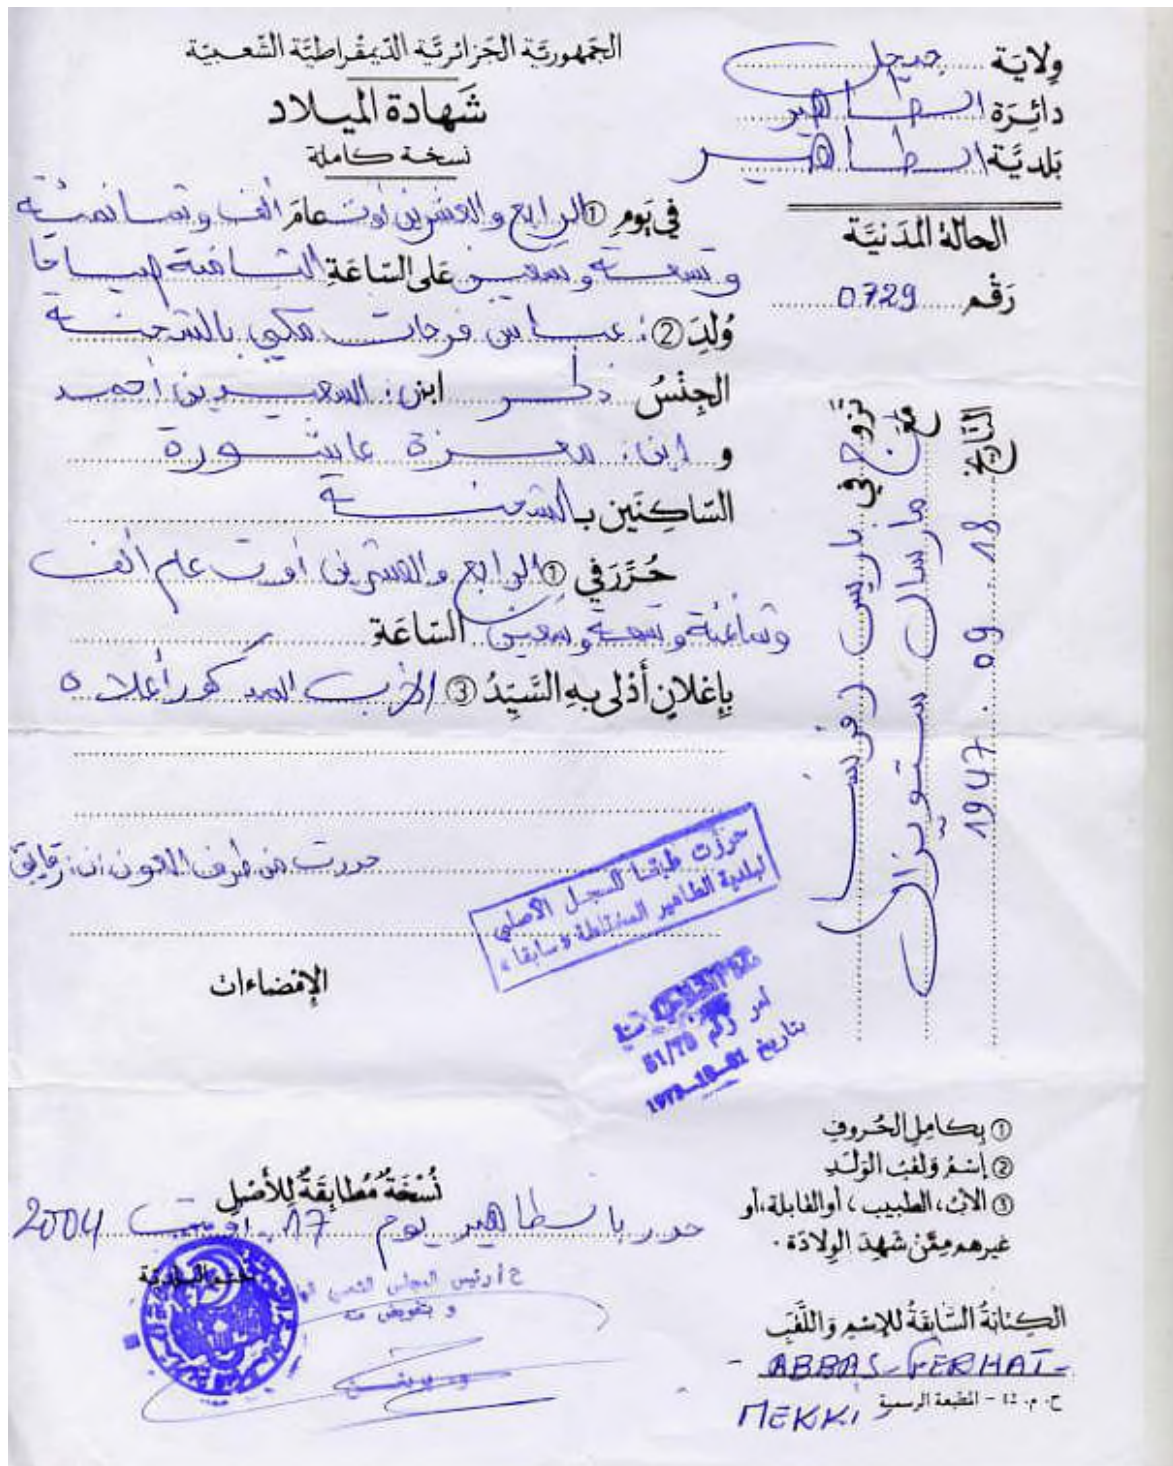 الجمهورية الجزائرية الديمقراطية الشعبية
شهادة الميلاد
نسخة كاملة
ولاية جيجل
دائرة الطاهير
بلدية الطاهير
الحالة المدنية
رقم 0729
في يوم ① الرابع والعشرين أوت عام ألف وثمانمئة
وتسعة وتسعين على الساعة الثامنة صباحا
ولد ② : عباس فرحات مكي بالشحنة
الجنس ذكر ابن : السعيد بن أحمد
و ابن : معزة عاشورة
الساكنين بالشحنة
حرر في ① الرابع والعشرين أوت عام ألف
وثمانمئة وتسعة وتسعين الساعة
بإعلان أدلى به السيد ③ الأب المذكور أعلاه
حررت من طرف العون
الإمضاءات
تزوج في باريس (فرنسا)
مع مارسال ستويزال
التاريخ 18 . 09 . 1947
حررت طبقا للسجل الأصلي
لبلدية الطاهير المختلطة «سابقا»
أمر رقم
بتاريخ
① بكامل الحروف
② إسم ولقب الولد
③ الأب، الطبيب، أو القابلة، أو
غيرهم ممن شهد الولادة .
نسخة مطابقة للأصل
حرر بالطاهير يوم 17 أوت 2004
ختم البلدية
ع/رئيس المجلس الشعبي
و بتفويض منه
الكتابة السابقة للإسم واللقب
- ABBAS-FERHAT-
MEKKI
المطبعة الرسمية